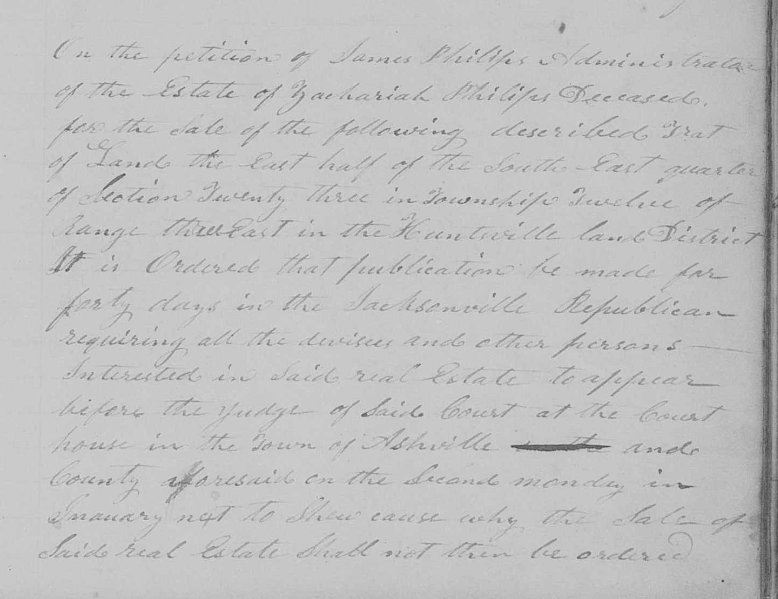 On the petition of James Philips Administrator
of the Estate of Zachariah Philips Deceased.
for the Sale of the following described Trat
of Land the East half of the South East quarter
of Section Twenty three in Township Twelve of
Range three East in the Huntsville land District
It is Ordered that publication be made for
forty days in the Jacksonville Republican
requiring all the devisees and other persons —
Interested in Said real Estate to appear
before the Judge of Said Court at the Court
house in the Town of Ashville and
County aforesaid on the Second monday in
Jnauary next to Shew cause why the Sale of
Said real Estate Shall not then be ordered